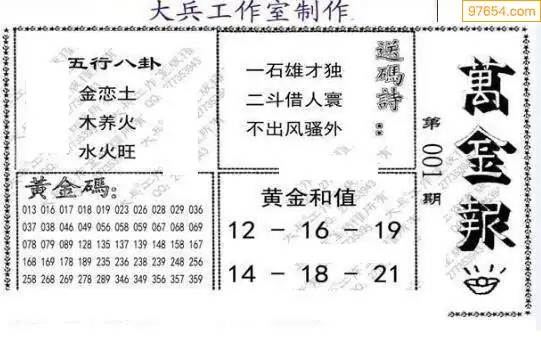 大兵工作室制作
97654.com
五行八卦
金恋土
木养火
水火旺
送碼詩：
一石雄才独
二斗借人寰
不出风骚外
萬金報
第001期
黃金碼：
013 016 017 018 019 023 026 028 029 036
037 038 046 049 056 058 059 067 068 069
078 079 089 128 135 137 139 148 158 167
168 169 178 189 235 236 239 245 248 256
258 268 269 278 289 346 349 356 357 359
黄金和值
12 - 16 - 19
14 - 18 - 21